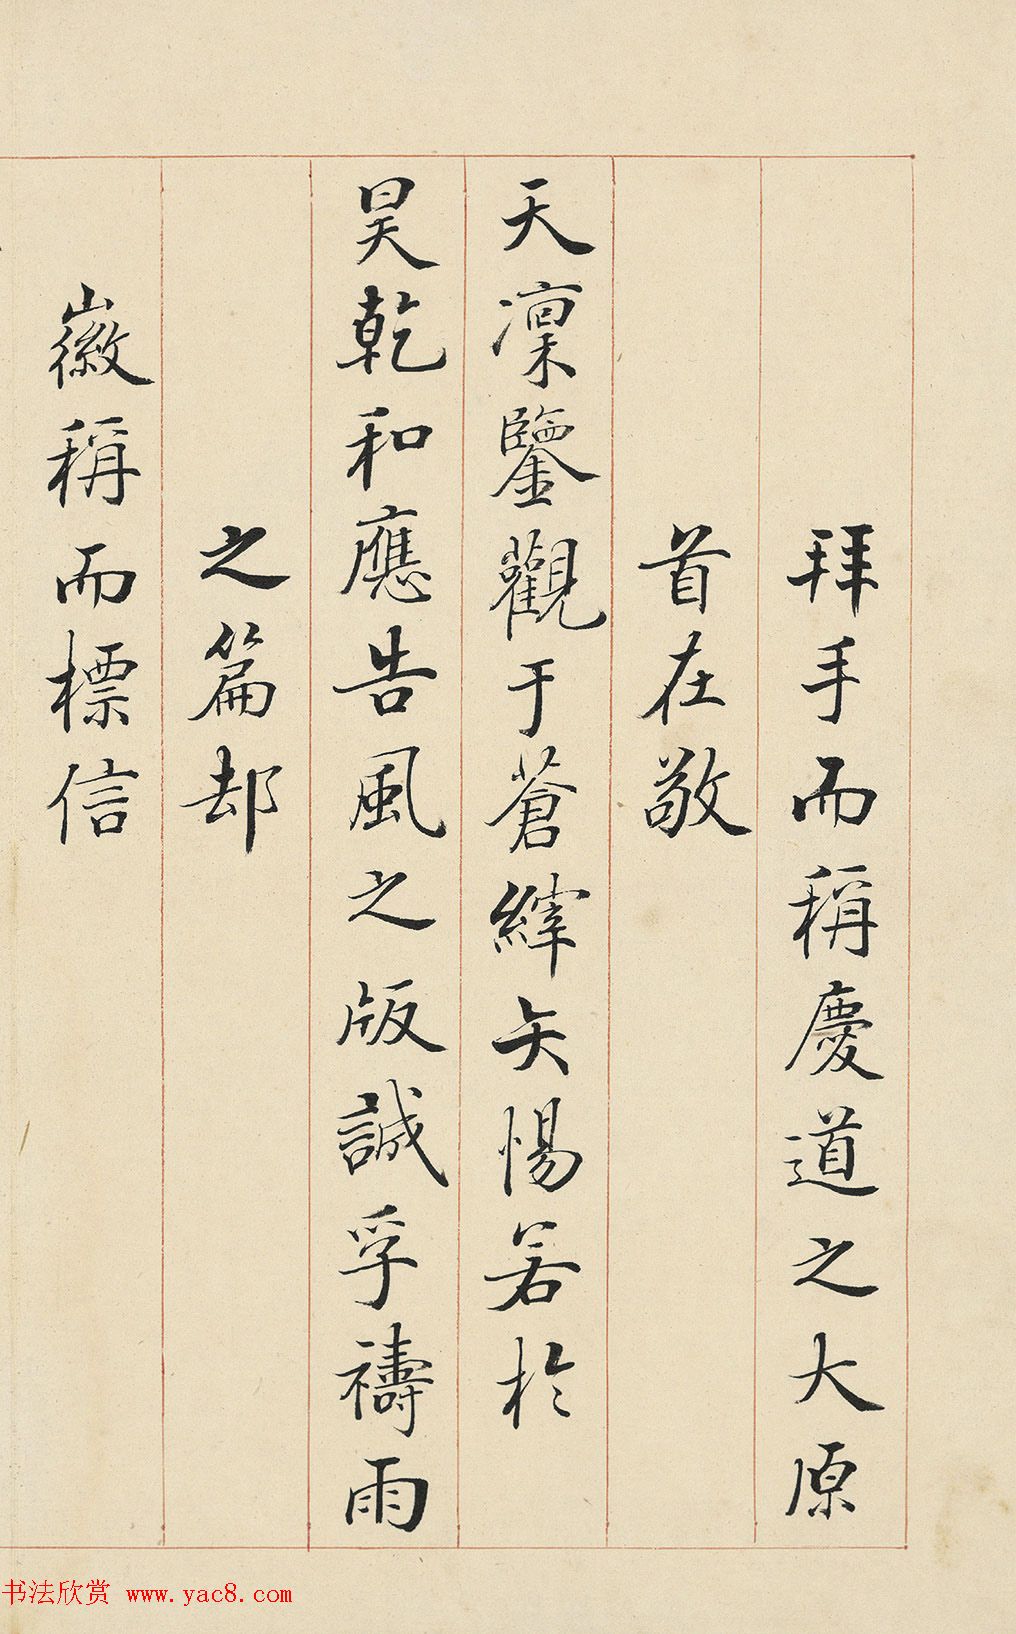 拜手而稱慶道之大原
首在敬
天凜鑒觀于蒼縡矢惕若於
昊乾和應告風之版誠孚禱雨
之篇却
徽稱而標信
书法欣赏 www.yac8.com